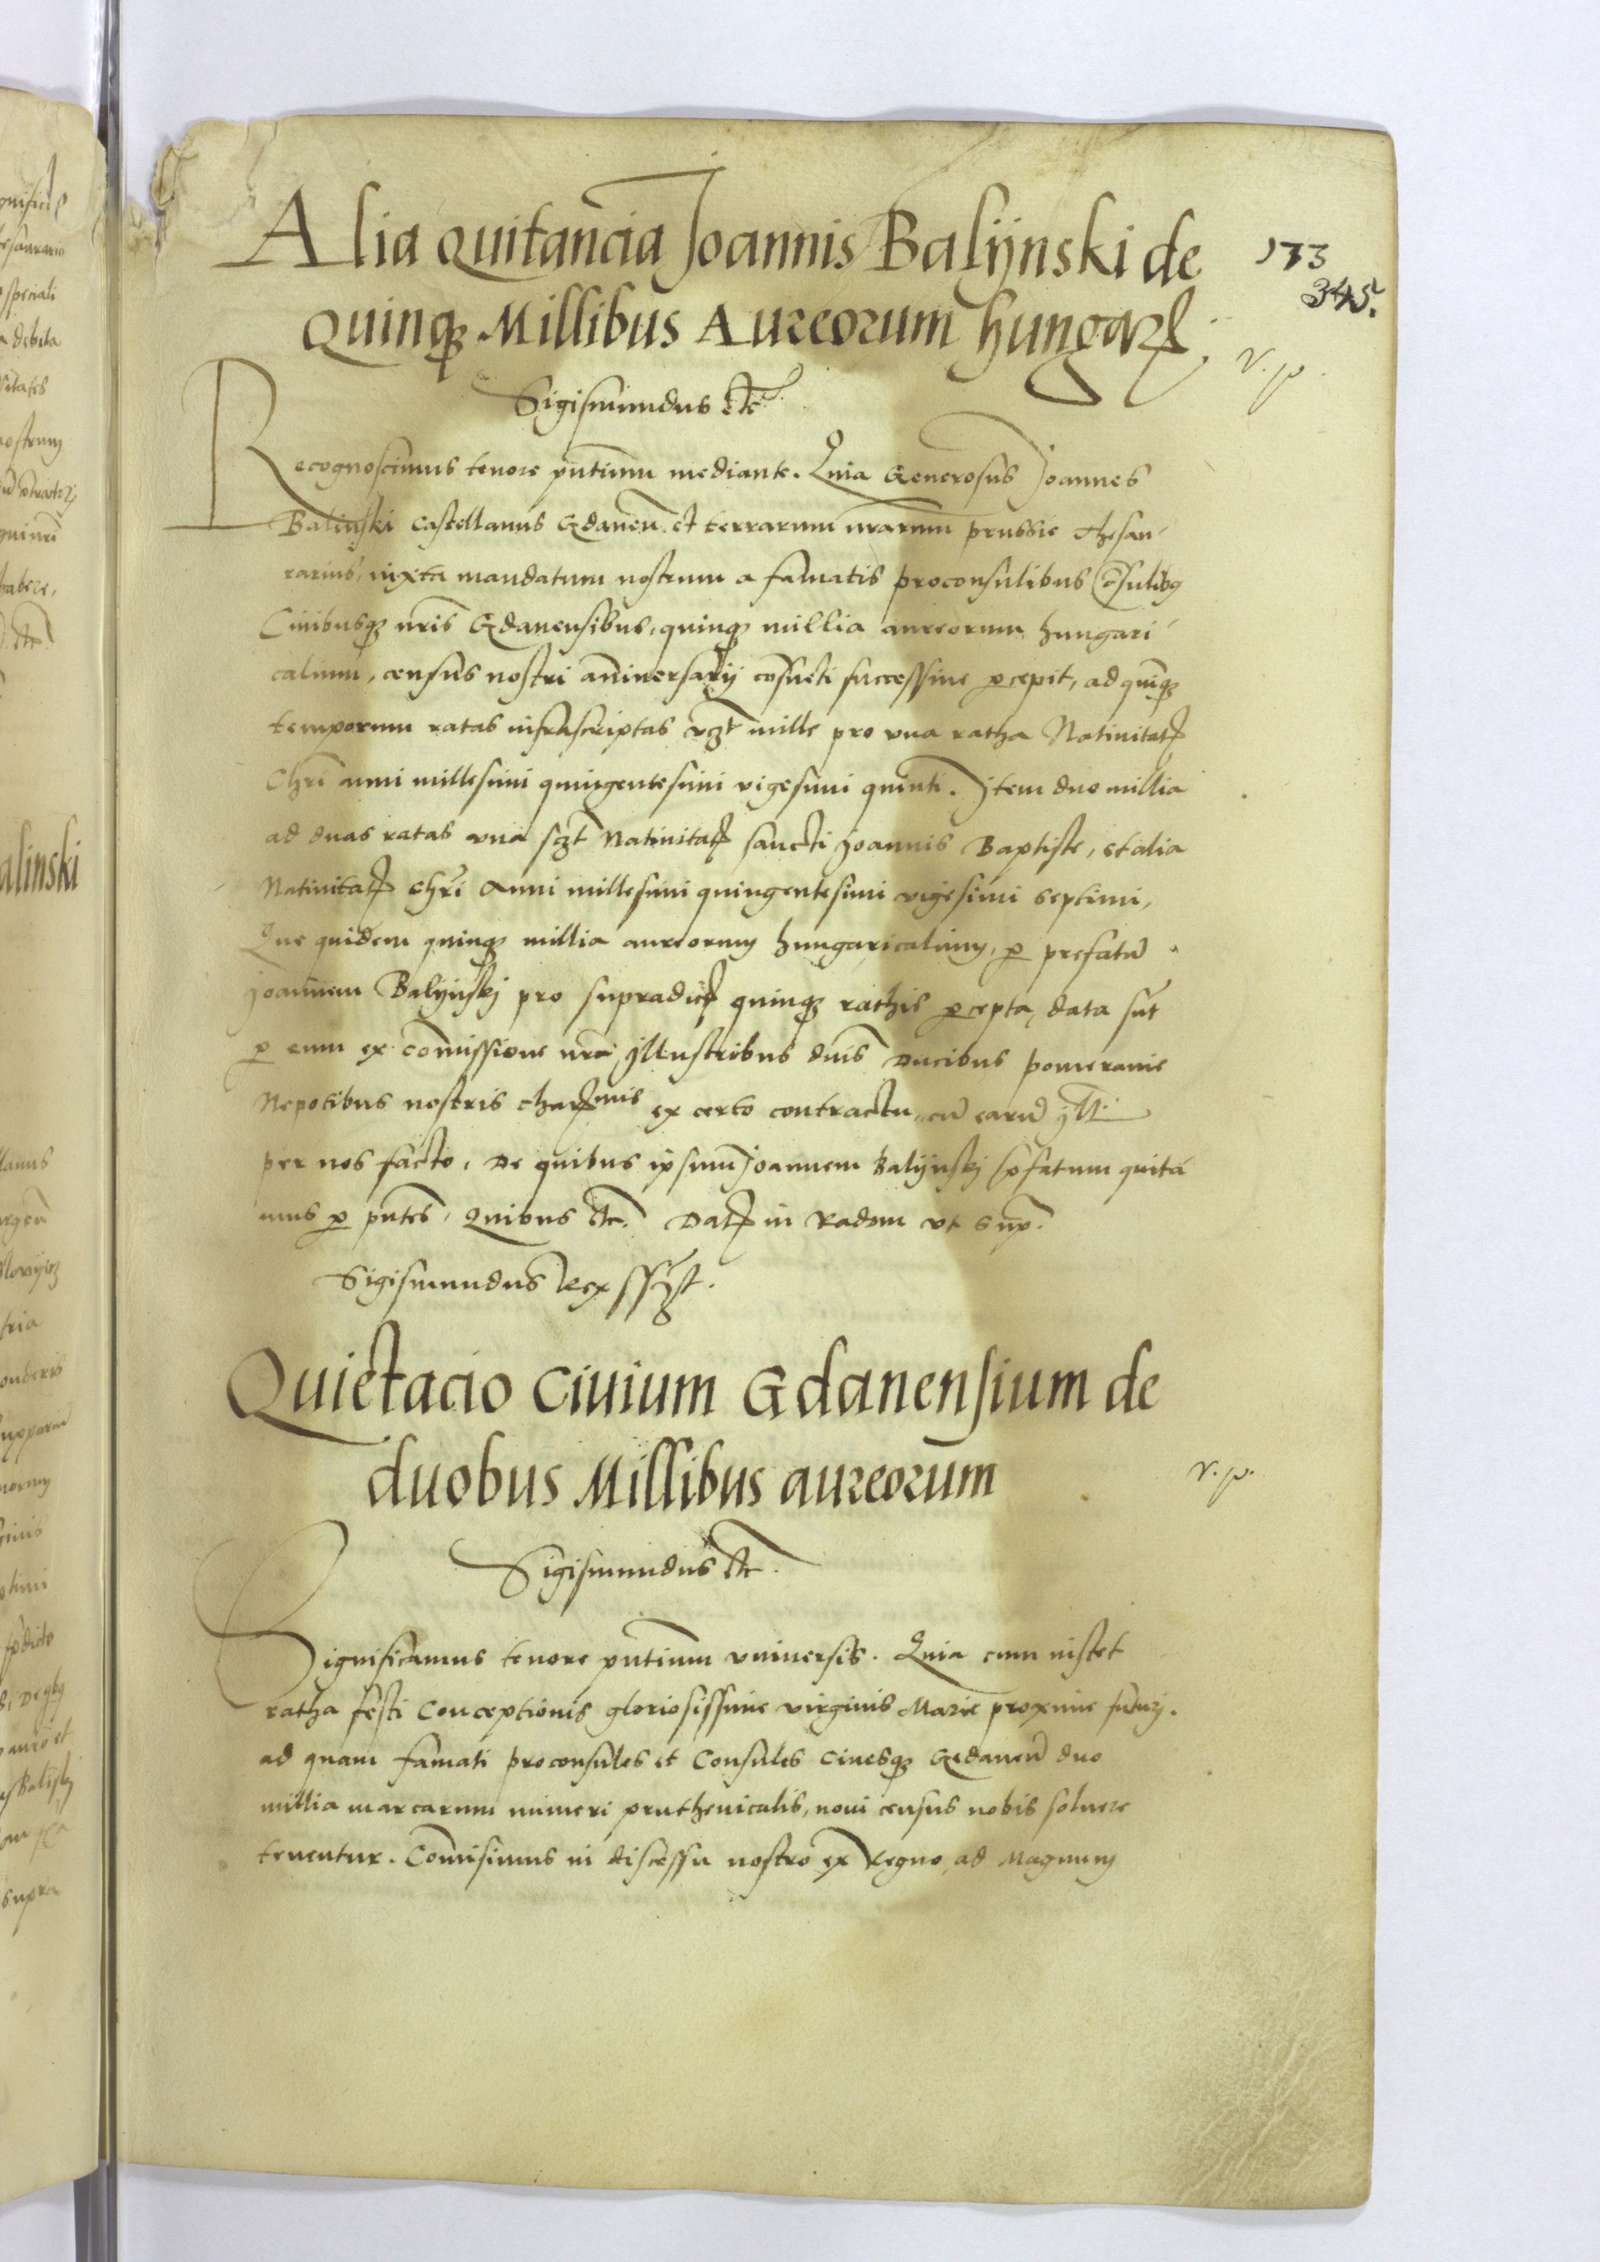 Alia quitancia Joannis Balijnski de
quinq3 Millibus Aureorum hungar
173
345.
Sigismundus etc
Recognoscimus tenore pntium mediante. Quia Generosus Joannes
Balinski castellanus Gdanen. et terrarum nrarum prussie thesau
rarius, iuxta mandatum nostrum a famatis proconsulibus consulibus
Ciuibusq3 nris Gdanensibus, quinq3 millia aureorum hungari
calium, census nostri anniversarij consueti successiue percepit, ad quinq3
temporum ratas infrascriptas vzt mille pro vna ratha Natiuitat
Chri anni millesimi quingentesimi vigesimi quinti. Item duo millia
ad duas ratas vna szt Natiuitat sancti Joannis Baptiste, et alia
Natiuitat Chri Anni millesimi quingentesimi vigesimi septimi,
Que quidem quinq3 millia aureorum hungaricalium, per prefatu
Joannem Balijnskj pro supradict quinq3 rathis percepta, data sut
per eum ex comissione nra, Illustribus dnis Ducibus pomeranie
Nepotibus nostris charmis ex certo contractu, cu earu Ill:
per nos facto, De quibus ipsum Joannem Balijnskj prefatum quita
mus per pntes, Quibus etc. Dat in Radom vt sup.
Sigismundus Rex sszt.
Quietacio Ciuium Gdanensium de
duobus Millibus aureorum
Sigismundus etc.
Significamus tenore pntium vniuersis. Quia cum instet
ratha festi Conceptionis gloriosissime virginis Marie proxime futurj.
ad quam famati proconsules et Consules Ciuesq3 Gedaneň duo
millia marcarum numeri pruthenicalis, noui census nobis soluere
tenentur. Comisimus in discessu nostro ex Regno, ad Magnum